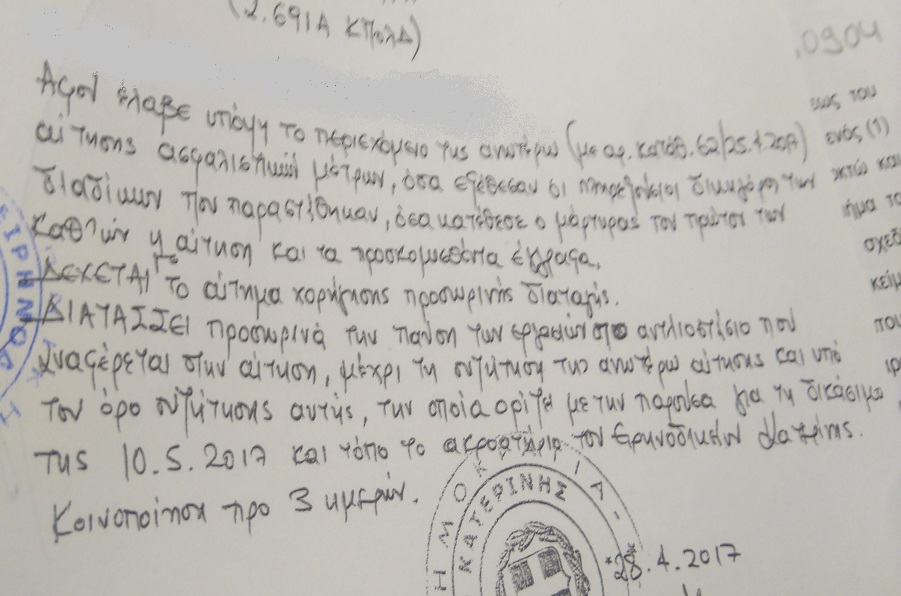 (2.691Α ΚΠολΔ)
.0904
Αφού έλαβε υπόψη το περιεχόμενο της ανωτέρω (με αρ. καταθ. 62/25.4.2017)
αίτησης ασφαλιστικών μέτρων, όσα εξέθεσαν οι πληρεξούσιοι δικηγόροι των
διαδίκων που παραστάθηκαν, όσα κατέθεσε ο μάρτυρας του πρώτου των
καθ'ών η αίτηση και τα προσκομισθέντα έγγραφα,
ΔΕΧΕΤΑΙ το αίτημα χορήγησης προσωρινής διαταγής.
ΔΙΑΤΑΣΣΕΙ προσωρινά την παύση των εργασιών στο αντλιοστάσιο που
αναφέρεται στην αίτηση, μέχρι τη συζήτηση της ανωτέρω αίτησης και υπό
τον όρο συζήτησης αυτής, την οποία ορίζει με την παρούσα για τη δικάσιμο
της 10.5.2017 και τόπο το ακροατήριο του Ειρηνοδικείου Κατερίνης.
Κοινοποίηση προ 3 ημερών.
28.4.2017
έως του
ενός (1)
οκτώ και
τμήμα το
σχεδ
κείμ
που
ΕΙΡΗΝΟΔ
ΗΜΟΚ ΙΑ
ΚΑΤΕΡΙΝΗΣ